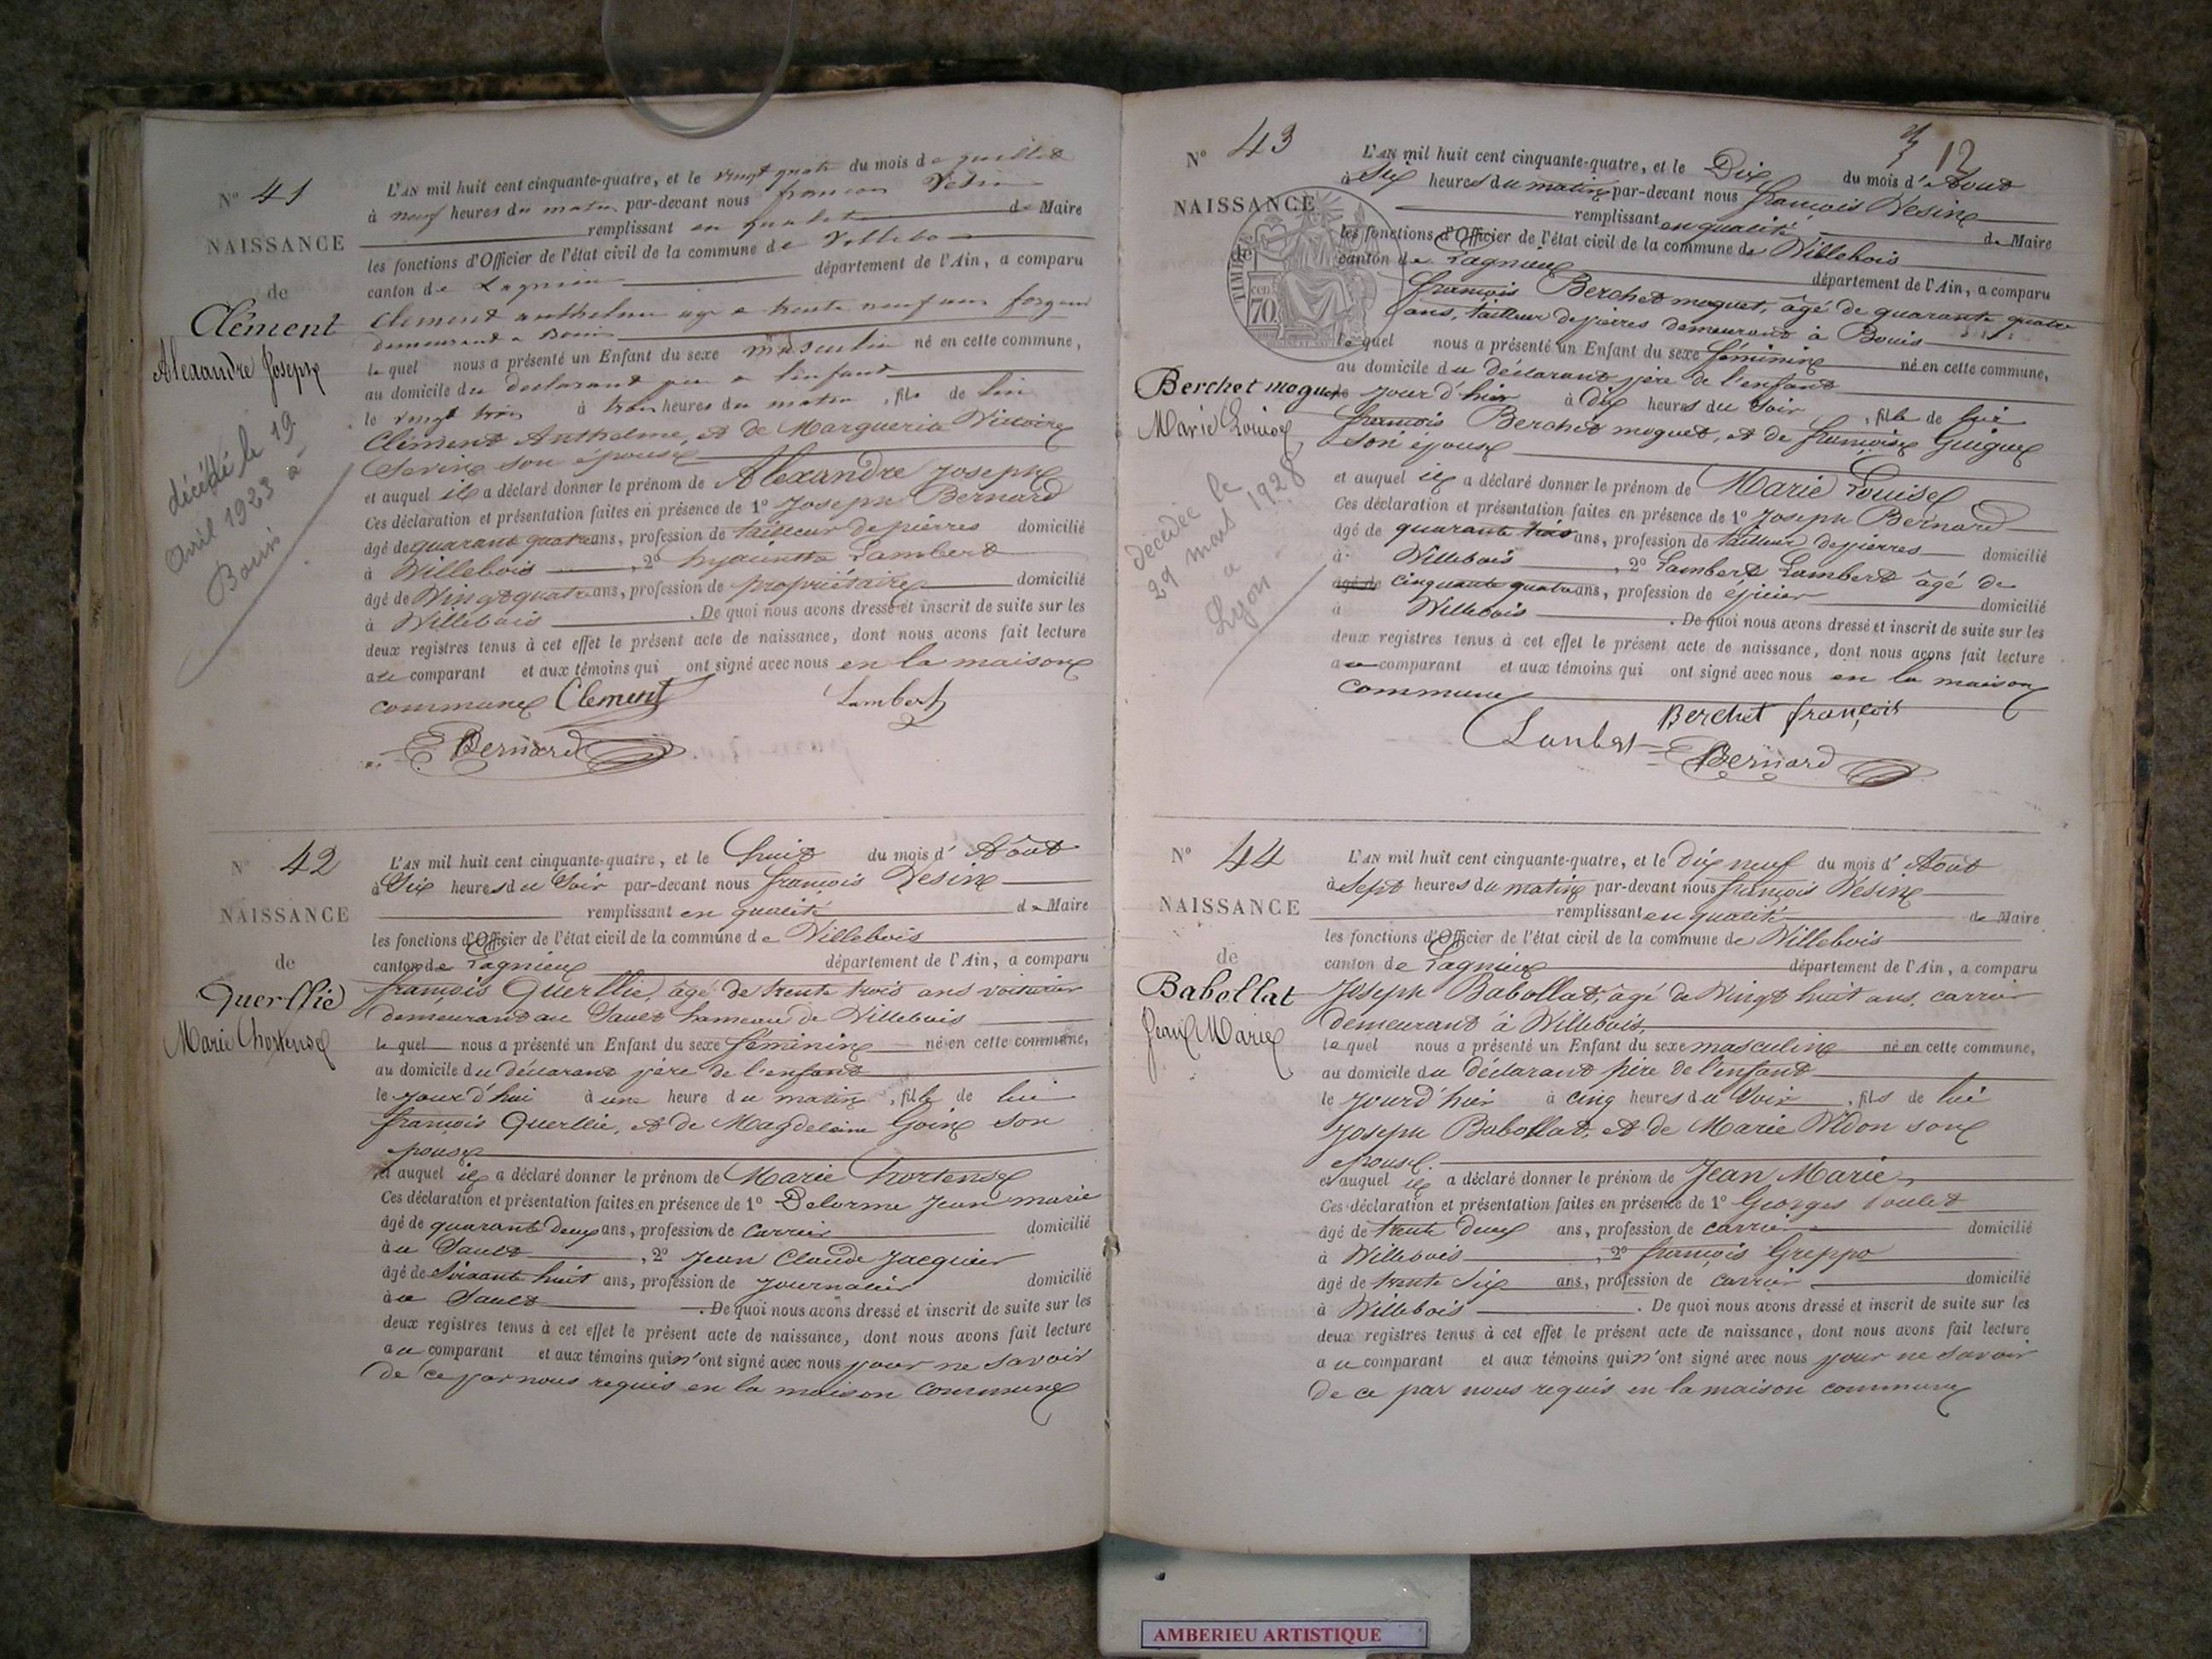 N° 41
NAISSANCE
de
Clément
Alexandre Joseph
décédé le 19
Avril 1923 à
Bouis
L'AN mil huit cent cinquante-quatre, et le vingt quatre du mois de juillet
à neuf heures du matin par-devant nous françois Vesin
remplissant en qualité de Maire
les fonctions d'Officier de l'état civil de la commune de Villebois
canton de Lagnieu département de l'Ain, a comparu
Clement anthelme agé de trente neuf ans forgeur
demeurant a Bouis
lequel nous a présenté un Enfant du sexe masculin né en cette commune,
au domicile du declarant père de l'enfant
le vingt trois à trois heures du matin, fils de lui
Clément Anthelme, et de Marguerite Victoire
Serine son épouse
et auquel il a déclaré donner le prénom de Alexandre Joseph
Ces déclaration et présentation faites en présence de 1° Joseph Bernard
âgé de quarante quatre ans, profession de tailleur de pierres domicilié
à Villebois, 2° hyacinthe Lambert
âgé de Vingt quatre ans, profession de propriétaire domicilié
à Villebois. De quoi nous avons dressé et inscrit de suite sur les
deux registres tenus à cet effet le présent acte de naissance, dont nous avons fait lecture
au comparant et aux témoins qui ont signé avec nous en la maison
commune Clement Lambert
Bernard
N° 42
NAISSANCE
de
Querllié
Marie hortense
L'AN mil huit cent cinquante-quatre, et le huit du mois d'Août
à Six heures du Soir par-devant nous françois Vesin
remplissant en qualité de Maire
les fonctions d'Officier de l'état civil de la commune de Villebois
canton de Lagnieu département de l'Ain, a comparu
françois Querllié, âgé de trente trois ans voiturier
demeurant au Sault hameau de Villebois
lequel nous a présenté un Enfant du sexe féminin né en cette commune,
au domicile du déclarant père de l'enfant
le jourd'hui à une heure du matin, fille de lui
françois Querllié, et de Magdeleine Goin son
épouse
et auquel il a déclaré donner le prénom de Marie hortense
Ces déclaration et présentation faites en présence de 1° Delorme Jean marie
âgé de quarante deux ans, profession de Carrier domicilié
au Sault, 2° Jean Claude Jacquier
âgé de Soixante huit ans, profession de Journalier domicilié
au Sault. De quoi nous avons dressé et inscrit de suite sur les
deux registres tenus à cet effet le présent acte de naissance, dont nous avons fait lecture
au comparant et aux témoins qui n'ont signé avec nous pour ne savoir
de ce par nous requis en la maison commune
12
N° 43
NAISSANCE
de
TIMBRE
70
Berchet moguet
Marie Louise
décédée le
29 mars 1928
a
Lyon
L'AN mil huit cent cinquante-quatre, et le Dix du mois d'Aout
à Six heures du matin par-devant nous françois Vesin
remplissant en qualité de Maire
les fonctions d'Officier de l'état civil de la commune de Villebois
canton de Lagnieu département de l'Ain, a comparu
françois Berchet moguet, âgé de quarante quatre
ans, tailleur de pierres demeurant à Bouis
lequel nous a présenté un Enfant du sexe féminin né en cette commune,
au domicile du déclarant père de l'enfant
le jour d'hier à dix heures du Soir, fille de lui
françois Berchet moguet, et de françoise Guigue
son épouse
et auquel il a déclaré donner le prénom de Marie Louise
Ces déclaration et présentation faites en présence de 1° Joseph Bernard
âgé de quarante trois ans, profession de tailleur de pierres domicilié
à Villebois, 2° Lambert Lambert âgé de
âgé de cinquante quatre ans, profession de épicier domicilié
à Villebois. De quoi nous avons dressé et inscrit de suite sur les
deux registres tenus à cet effet le présent acte de naissance, dont nous avons fait lecture
au comparant et aux témoins qui ont signé avec nous en la maison
commune
Berchet françois
Lambert Bernard
N° 44
NAISSANCE
de
Babollat
Jean Marie
L'AN mil huit cent cinquante-quatre, et le dix neuf du mois d'Aout
à Sept heures du matin par-devant nous françois Vésin
remplissant en qualité de Maire
les fonctions d'Officier de l'état civil de la commune de Villebois
canton de Lagnieu département de l'Ain, a comparu
Joseph Babollat, âgé de Vingt huit ans, carrier
demeurant à Villebois,
lequel nous a présenté un Enfant du sexe masculin né en cette commune,
au domicile du déclarant père de l'enfant
le jourd'hier à cinq heures du Soir, fils de lui
Joseph Babollat, et de Marie Vidon son
épouse.
et auquel il a déclaré donner le prénom de Jean Marie
Ces déclaration et présentation faites en présence de 1° Georges Poulet
âgé de trente deux ans, profession de carrier domicilié
à Villebois, 2° françois Greppo
âgé de trente Six ans, profession de carrier domicilié
à Villebois. De quoi nous avons dressé et inscrit de suite sur les
deux registres tenus à cet effet le présent acte de naissance, dont nous avons fait lecture
au comparant et aux témoins qui n'ont signé avec nous pour ne savoir
de ce par nous requis en la maison commune
AMBERIEU ARTISTIQUE